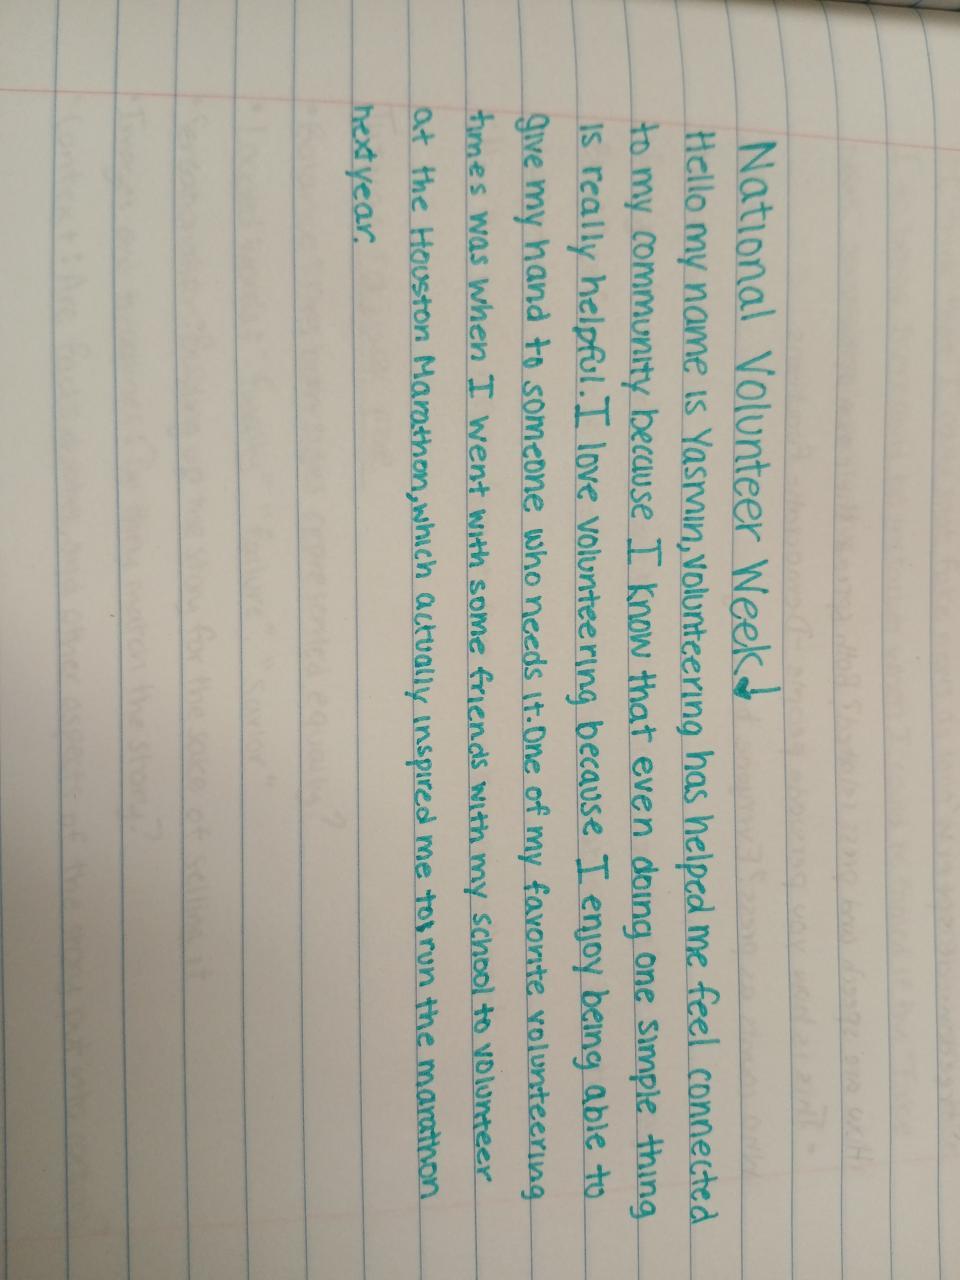 National Volunteer Week!
Hello my name is Yasmin, volunteering has helped me feel connected
to my community because I know that even doing one simple thing
is really helpful. I love volunteering because I enjoy being able to
give my hand to someone who needs it. One of my favorite volunteering
times was when I went with some friends with my school to volunteer
at the Houston Marathon, which actually inspired me to run the marathon
next year.